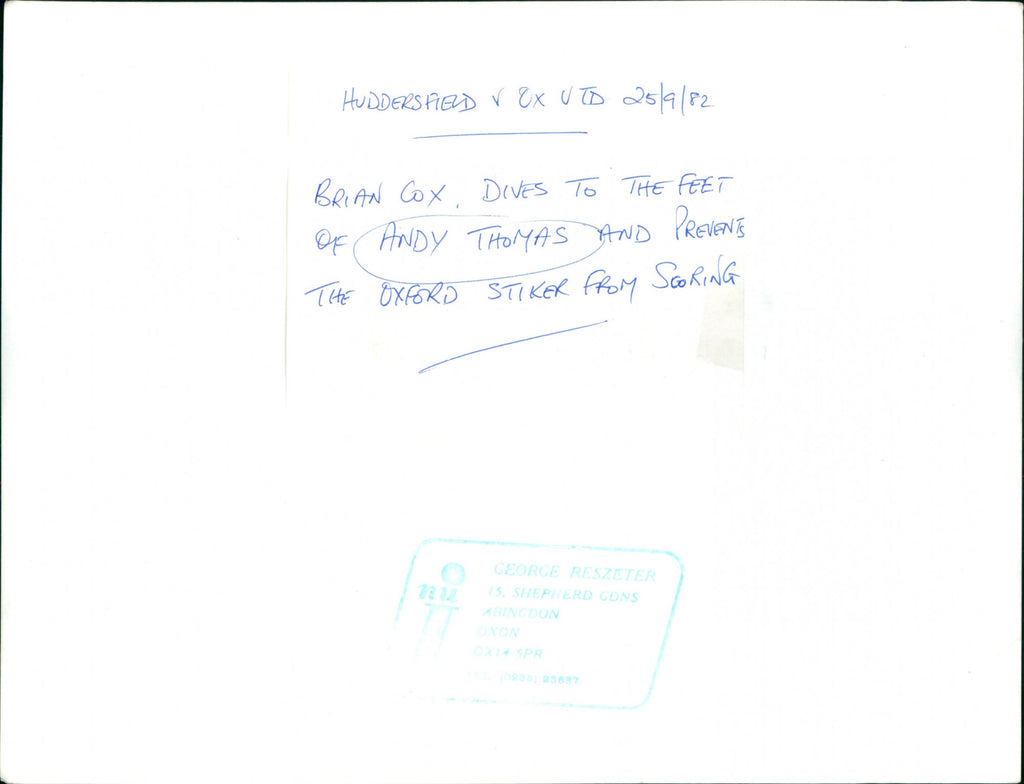 HUDDERSFIELD V OX UTD 25/9/82
BRIAN COX. DIVES TO THE FEET
OF ANDY THOMAS AND PREVENTS
THE OXFORD STIKER FROM SCORING
GEORGE RESZETER
15, SHEPHERD GDNS
ABINGDON
OXON
OX14 5PR